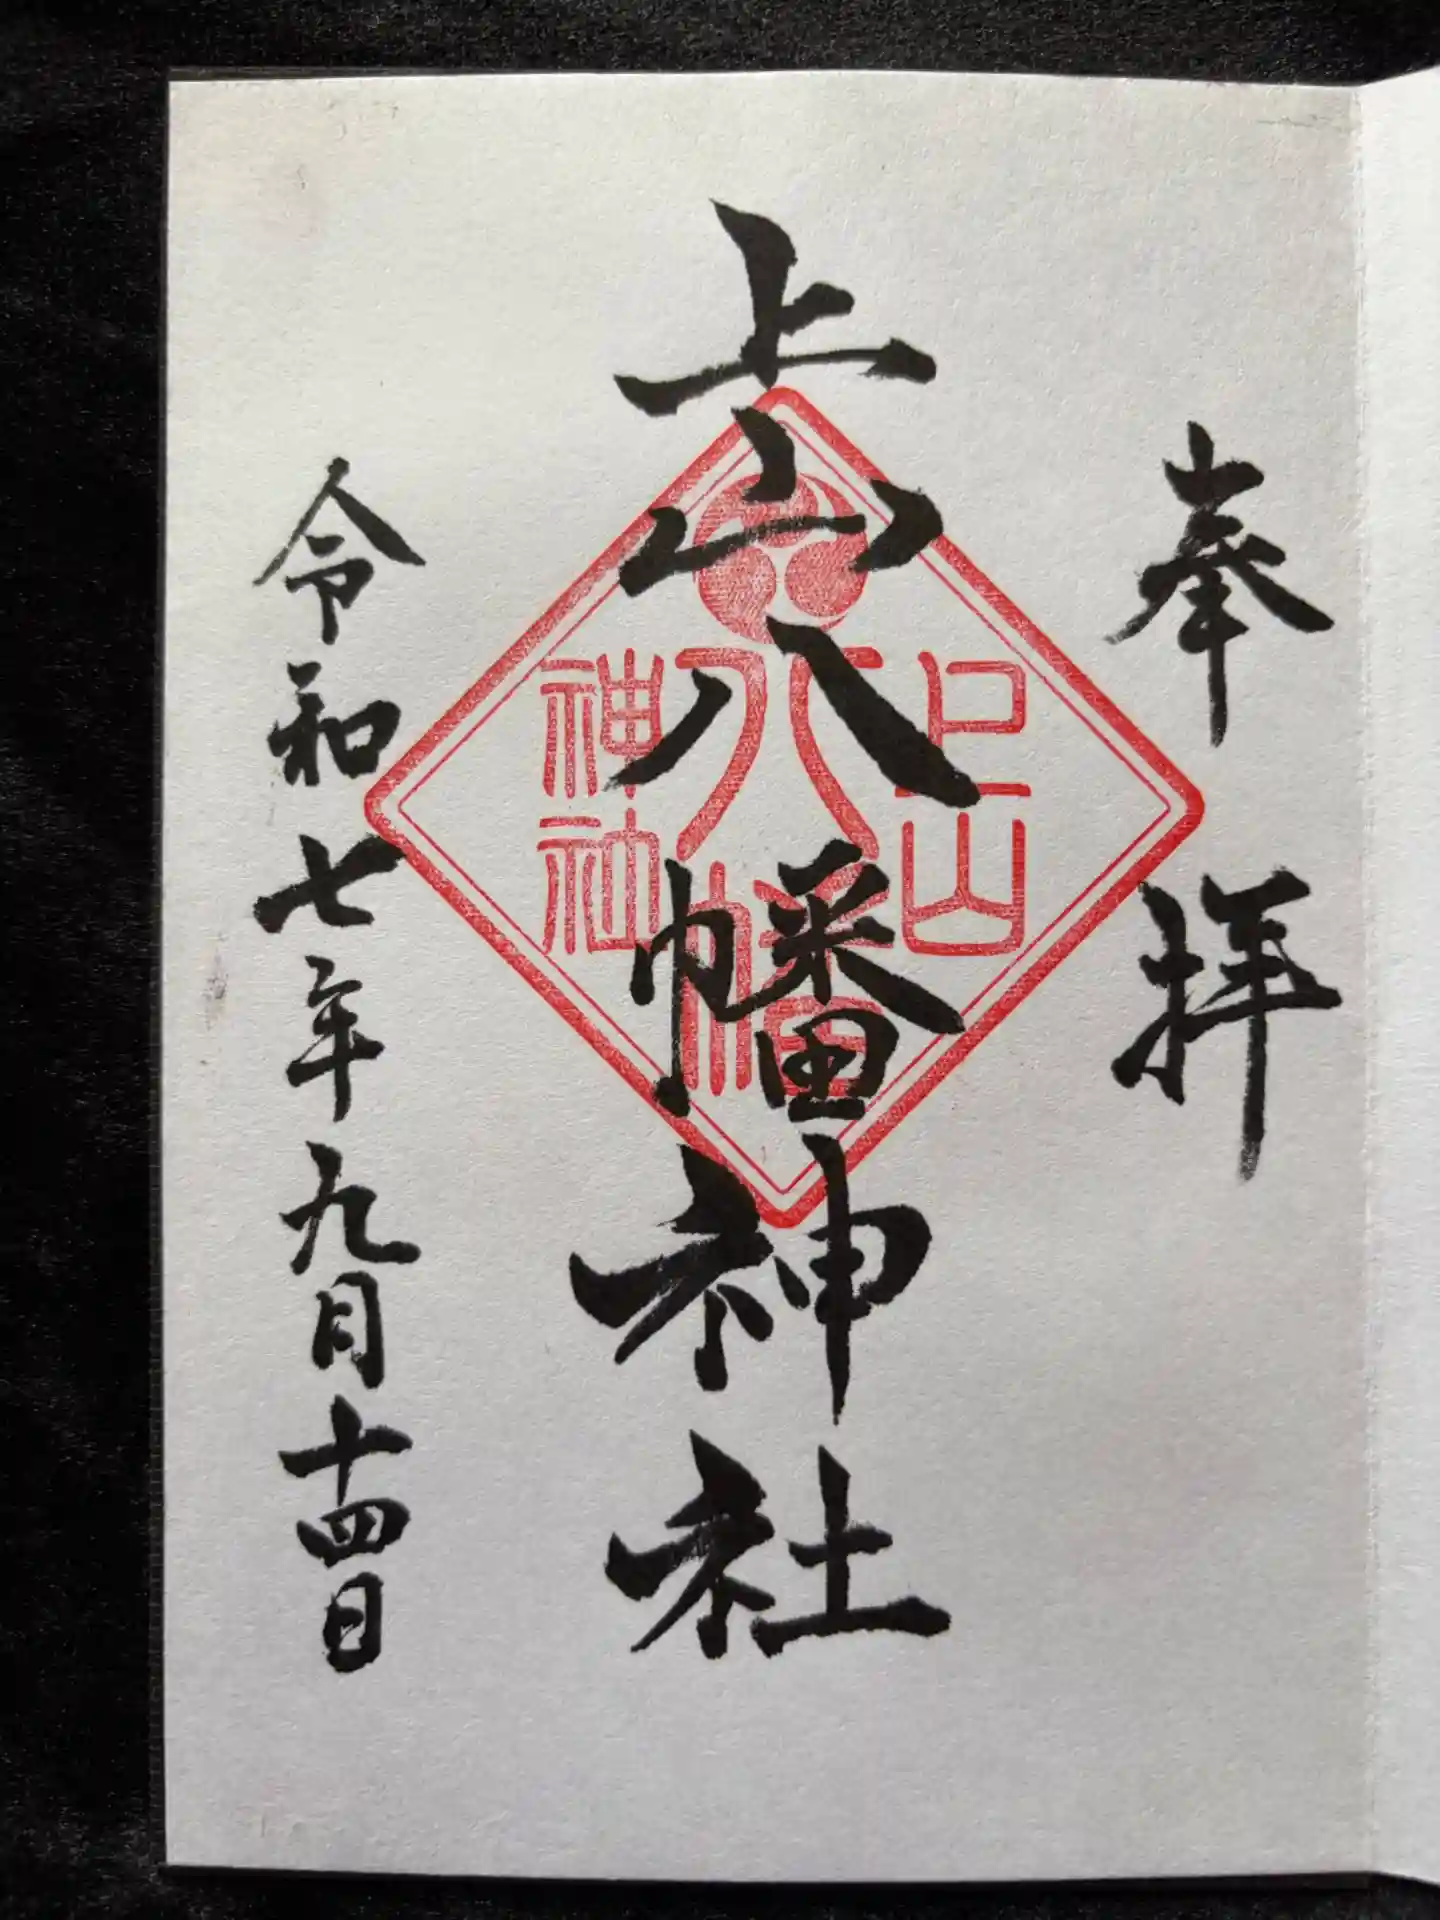 奉拝
上山八幡神社
上山
八幡
神社
令和七年九月十四日